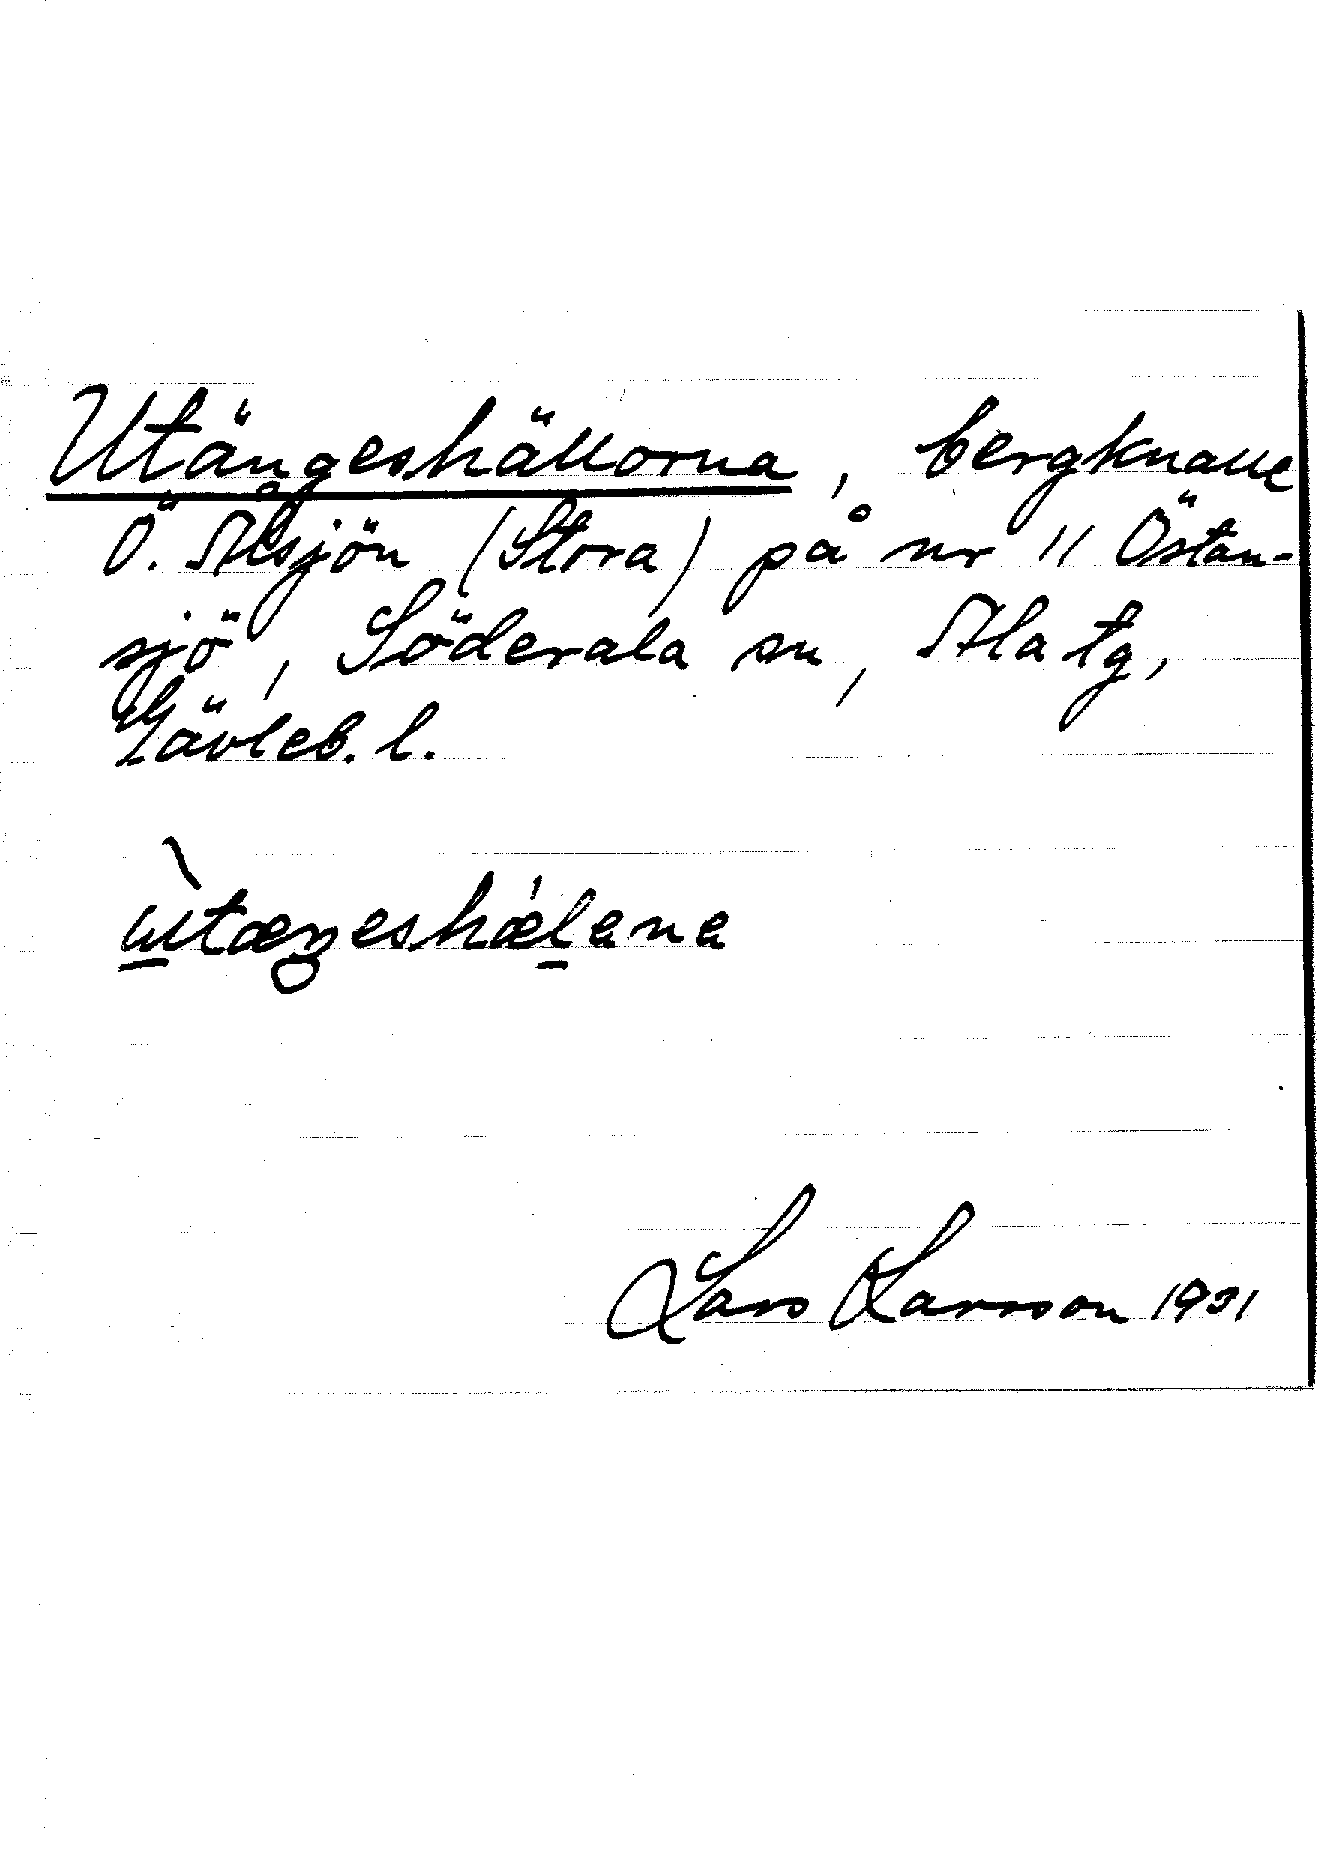 Utängeshällorna, bergknalle
Ö. Ålsjön (Stora) på nr 11 Östan-
sjö, Söderala sn, Ala tg,
Gävleb. l.
ùtæŋeshǽlana
Lars Larsson 1931